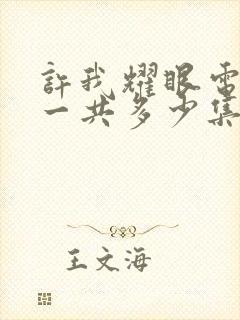 許我耀眼電
一共多少集
王文海